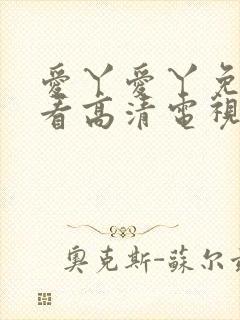 愛丫愛丫免
看高清電視
奧克斯-蘇尔